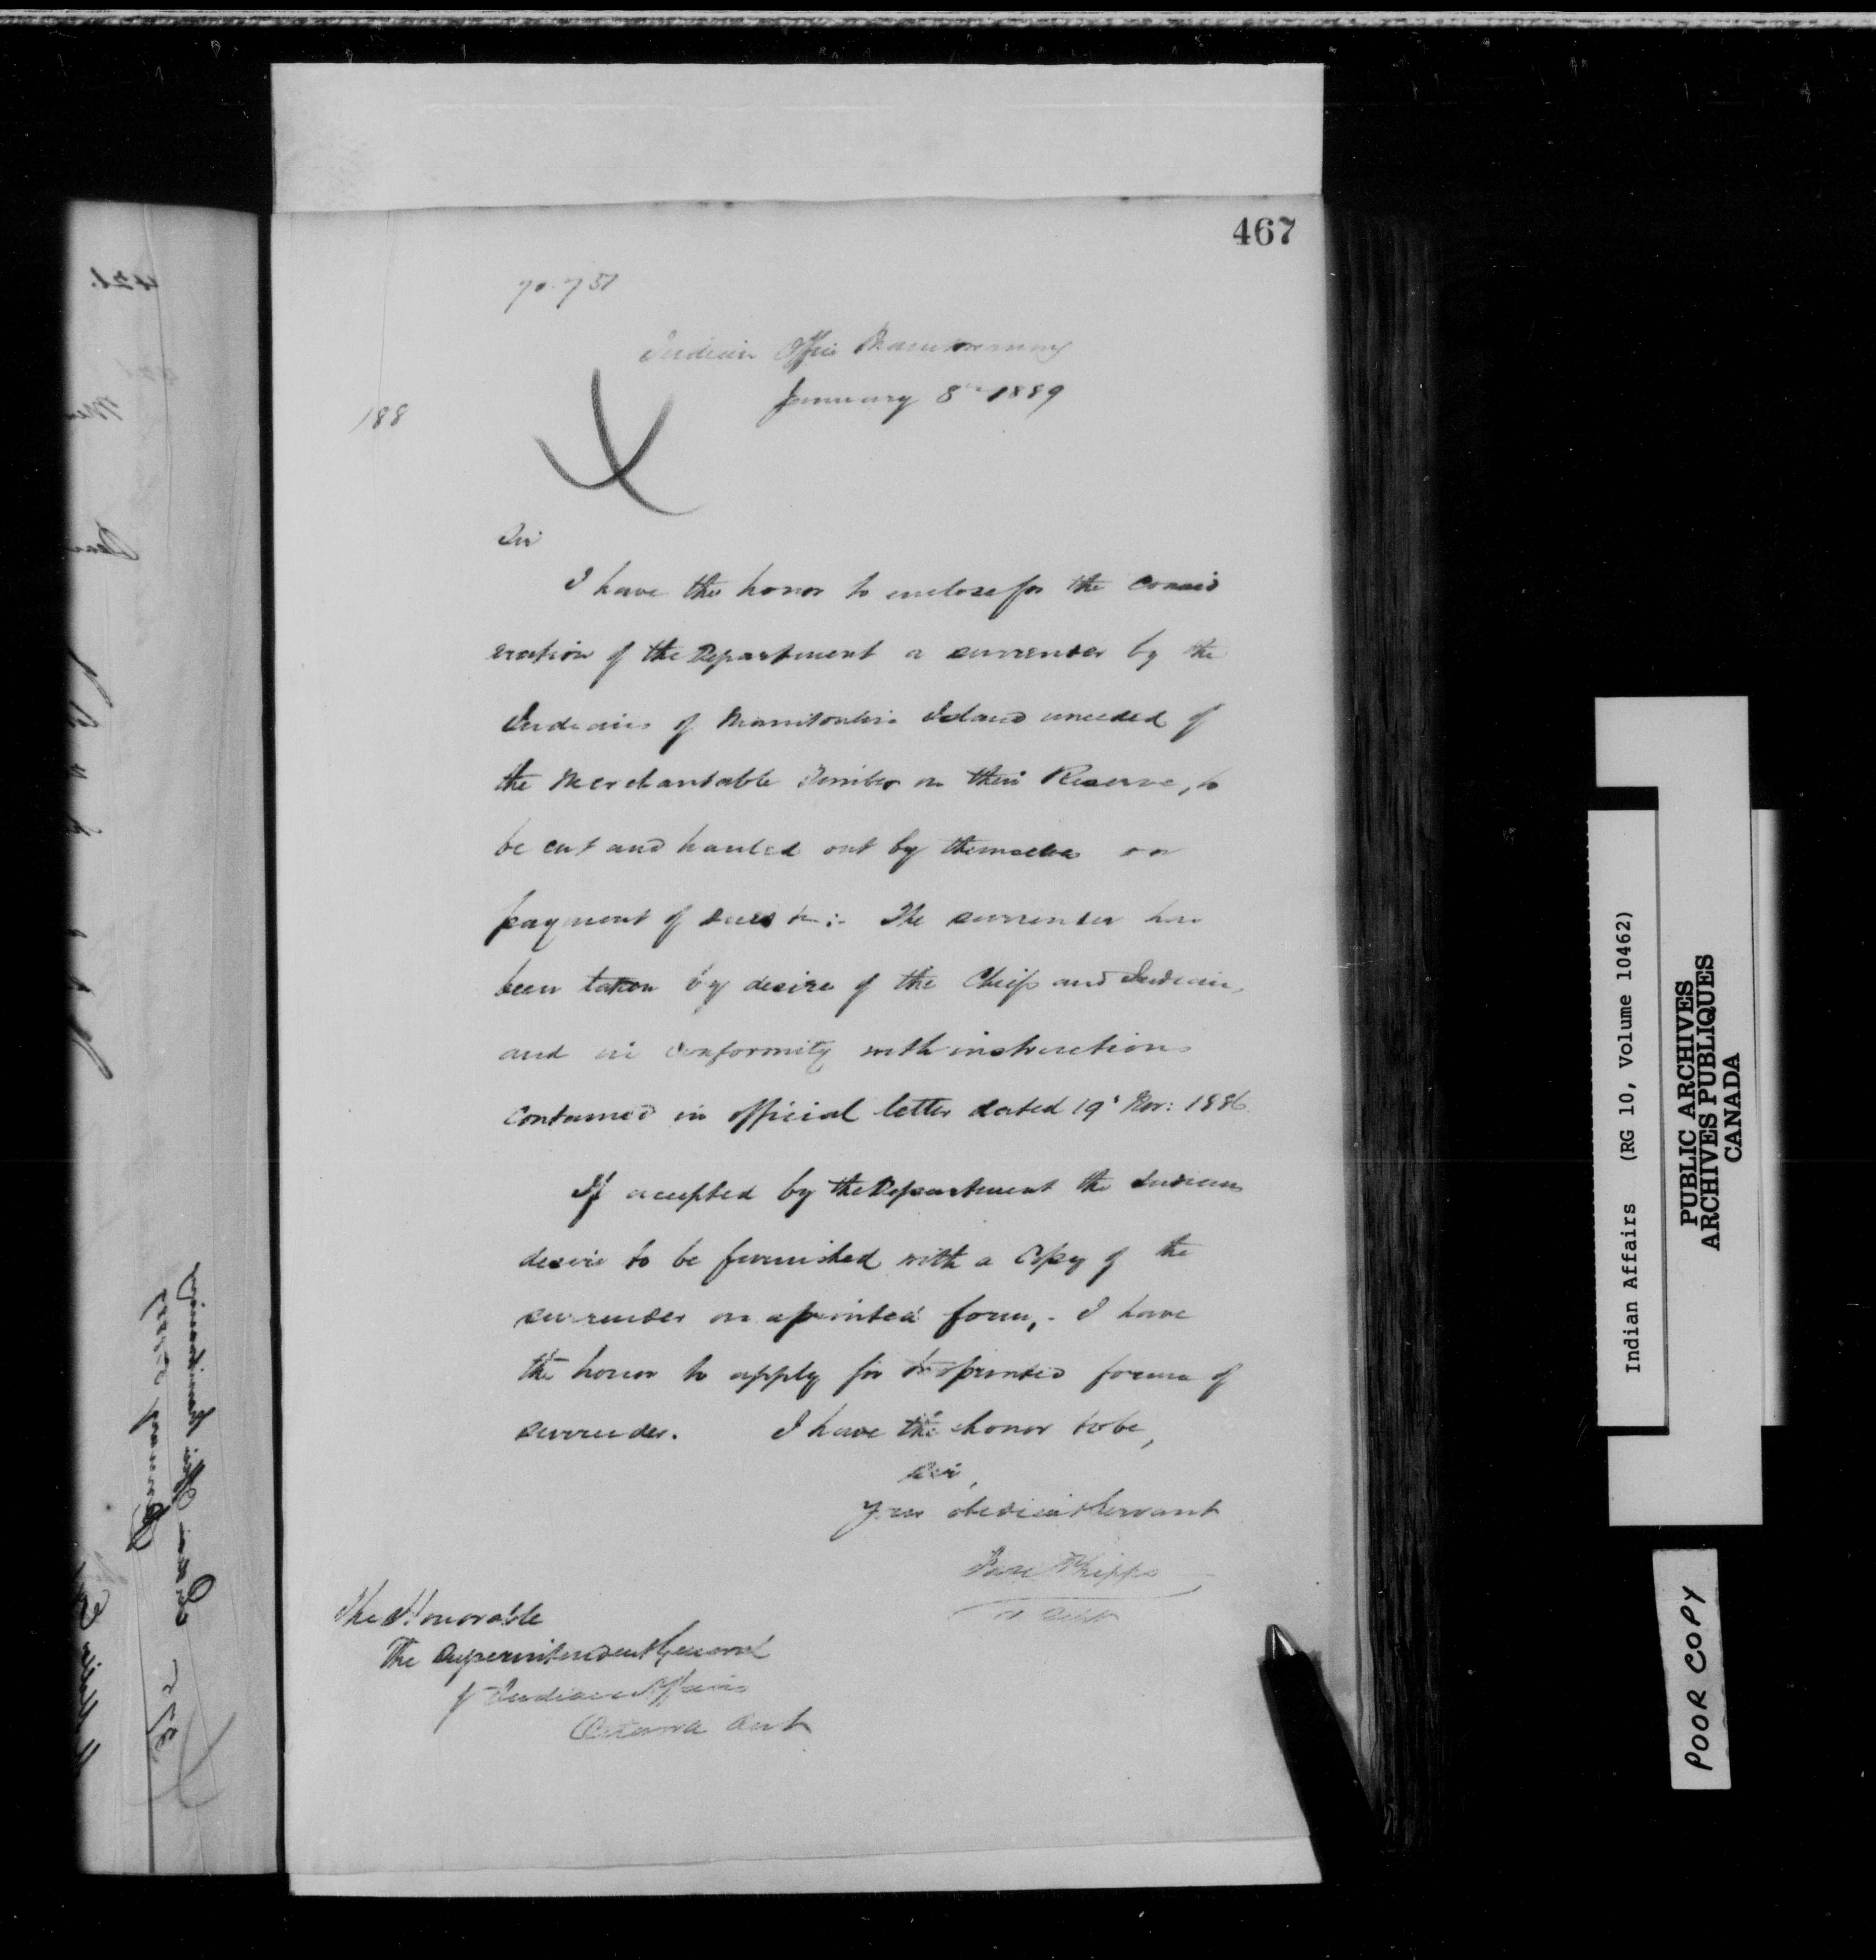 467
70.751
Indian Office Manitowaning
January 8th 1889
188
Sir
I have the honor to enclose for the consid
eration of the Department a surrender by the
Indians of Manitoulin Island unceded of
the Merchantable Timber on their Reserve, to
be cut and hauled out by themselves on
payment of dues &c:- The surrender has
been taken by desire of the Chiefs and Indians,
and in conformity with instructions
contained in official letter dated 19' Nov: 1886.
If accepted by the Department the Indians
desire to be furnished with a copy of the
surrender on a printed form,- I have
the honor to apply for printed forms of
surrender. I have the honor to be,
Sir,
Your obedient Servant
Phipps
The Honorable
The Superintendent General
of Indian Affairs
Ottawa Ont
Indian Affairs (RG 10, Volume 10462)
PUBLIC ARCHIVES
ARCHIVES PUBLIQUES
CANADA
POOR COPY